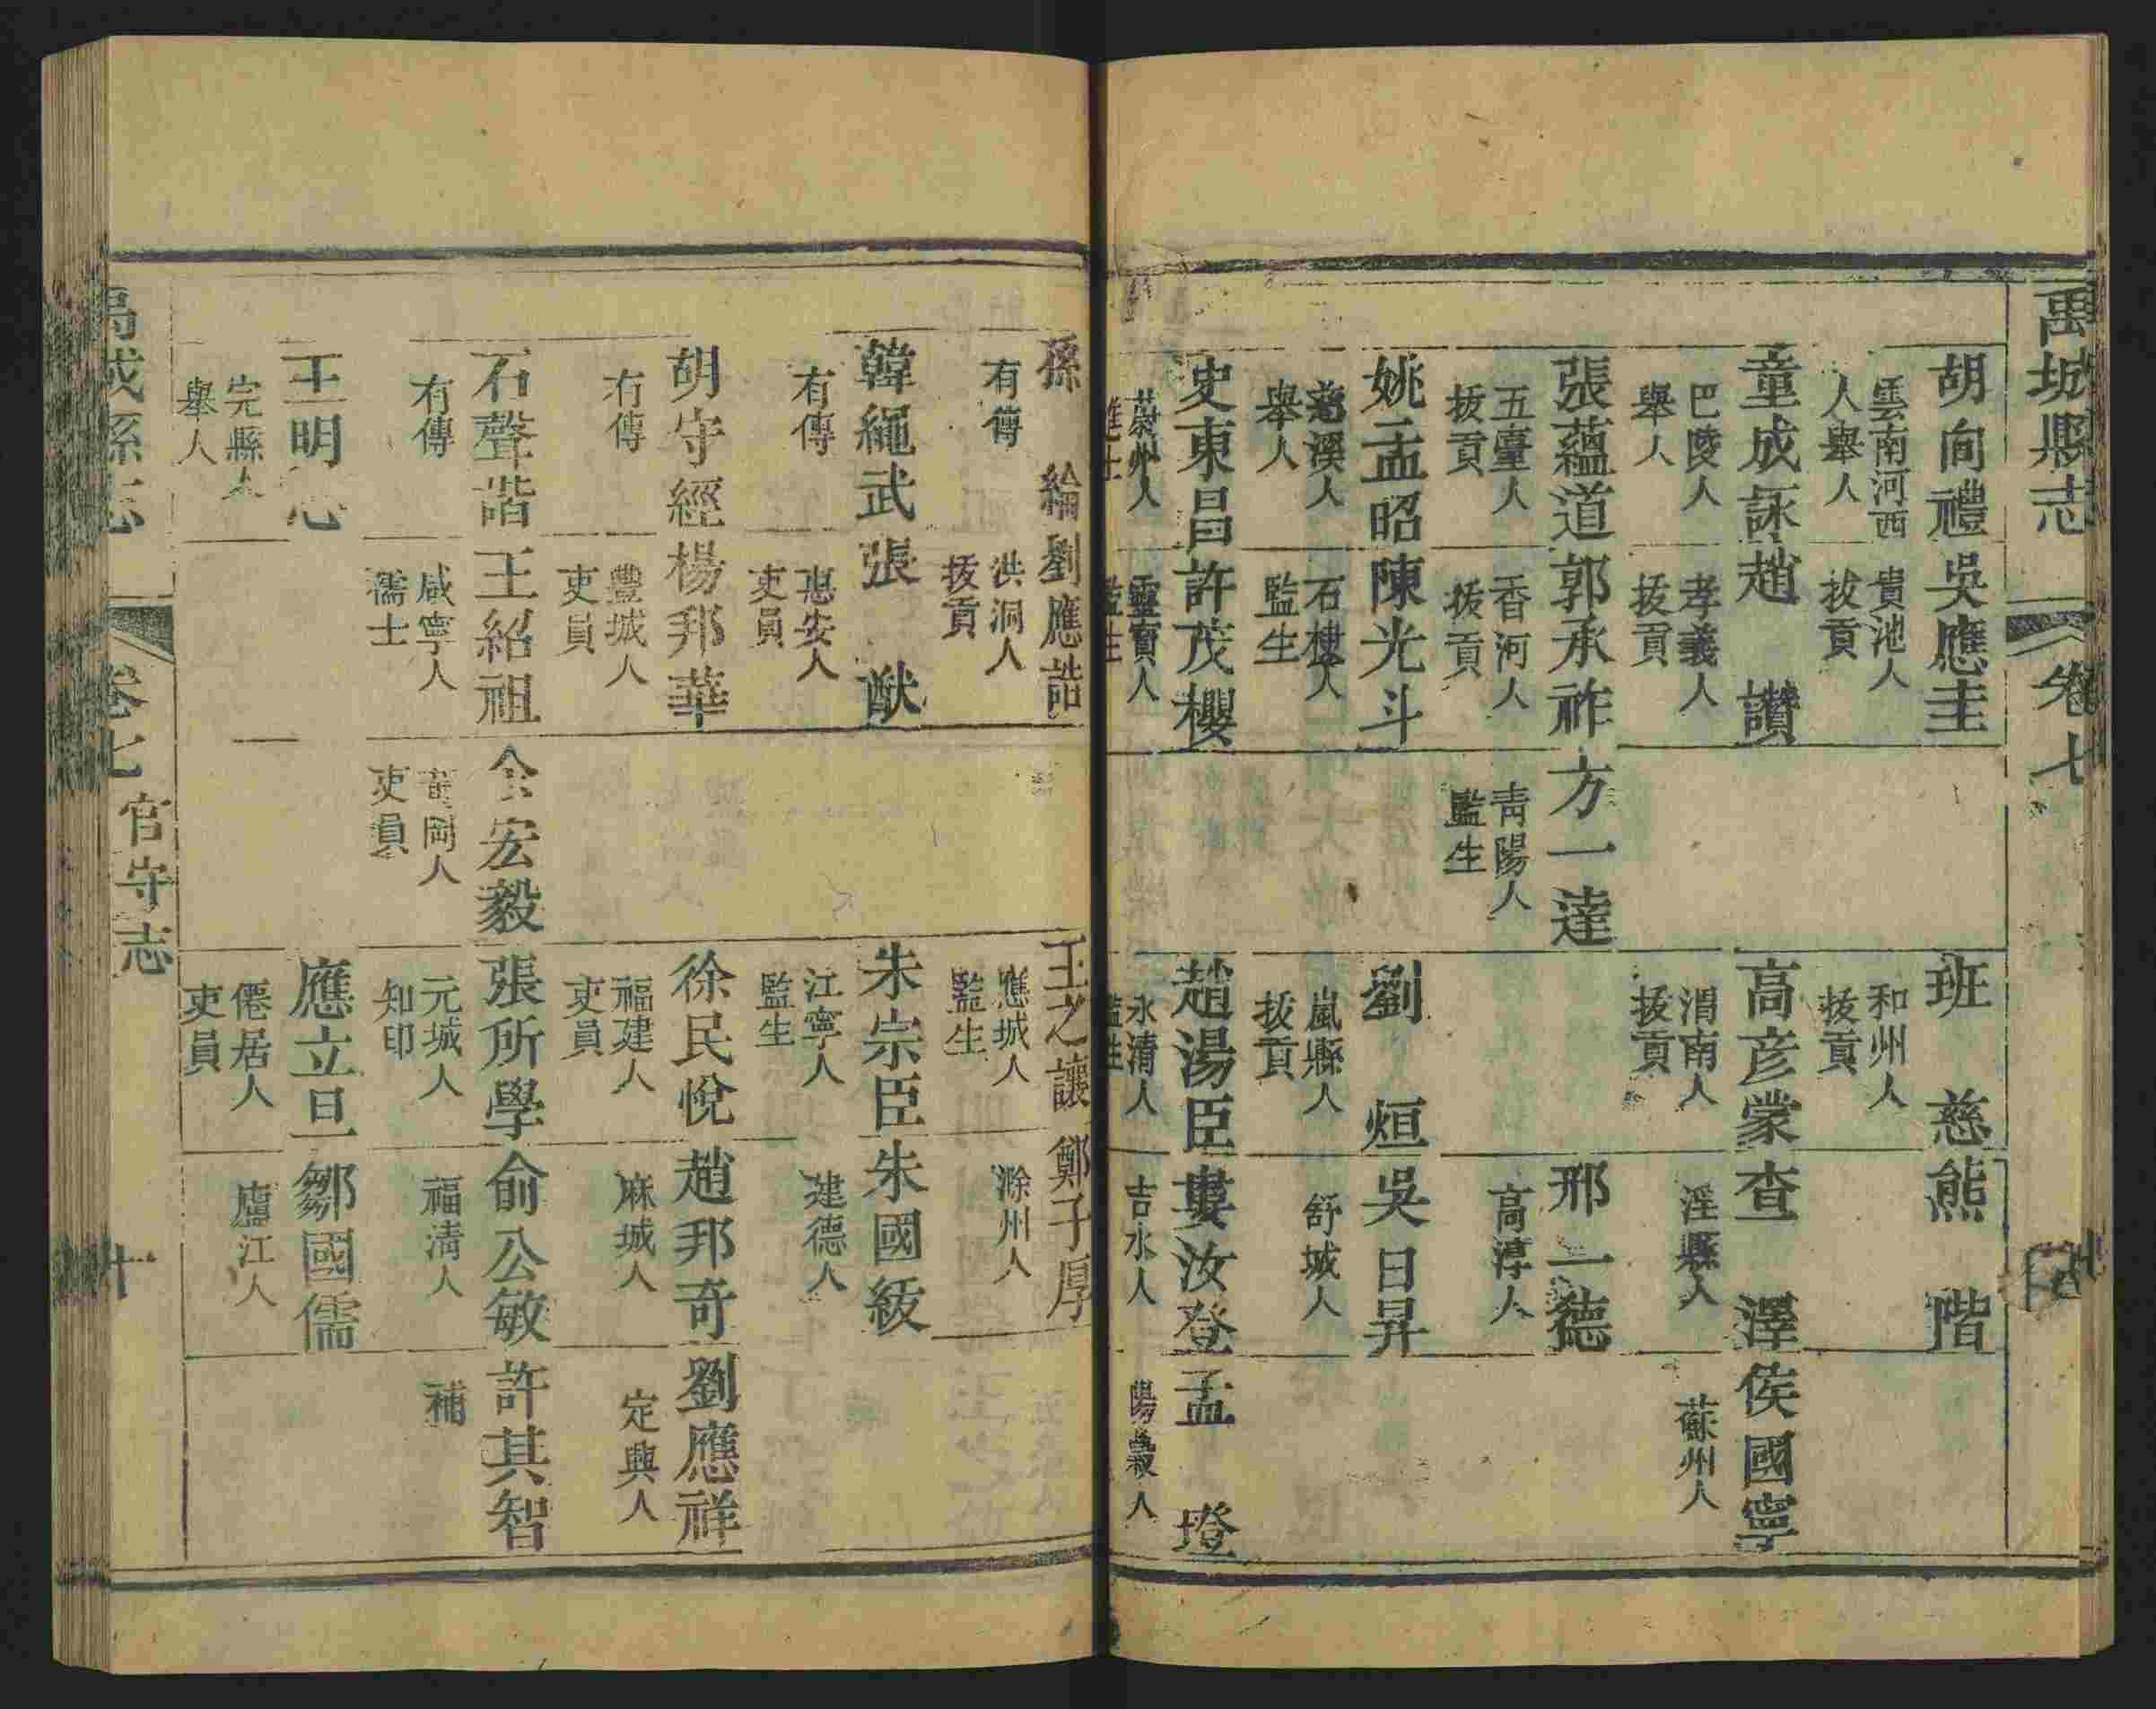 禹城縣志
卷七
胡向禮 吳應圭 班慈 熊階
雲南河西人舉人 貴池人拔貢 和州人拔貢
童成詠 趙讚 高彦蒙 查澤 侯國寧
巴陵人舉人 孝義人拔貢 渭南人拔貢 涇縣人 蘇州人
張蘊道 郭承祚 方一達 邢一德
五臺人拔貢 香河人拔貢 青陽人監生 高淳人
姚孟昭 陳光斗 劉烜 吳日昇
慈溪人舉人 石樓人監生 嵐縣人拔貢 舒城人
史東昌 許茂櫻 趙湯臣 婁汝登 孟璒
蔚州人進士 靈寶人監生 永清人監生 吉水人 陽穀人
孫綸 劉應誥 王之讓 鄭子厚
有傳 洪洞人拔貢 應城人監生 滁州人
韓繩武 張猷 朱宗臣 朱國紱
有傳 惠安人吏員 江寧人監生 建德人
胡守經 楊邦華 徐民悅 趙邦奇 劉應祥
有傳 豐城人吏員 福建人吏員 麻城人 定興人
石聲諧 王紹祖 余宏毅 張所學 俞公敏 許其智
有傳 咸寧人儒士 黃岡人吏員 元城人知印 福清人 補
王明心 應立旦 鄒國儒
完縣人舉人 僊居人吏員 廬江人
禹城縣志
卷七 官守志
十